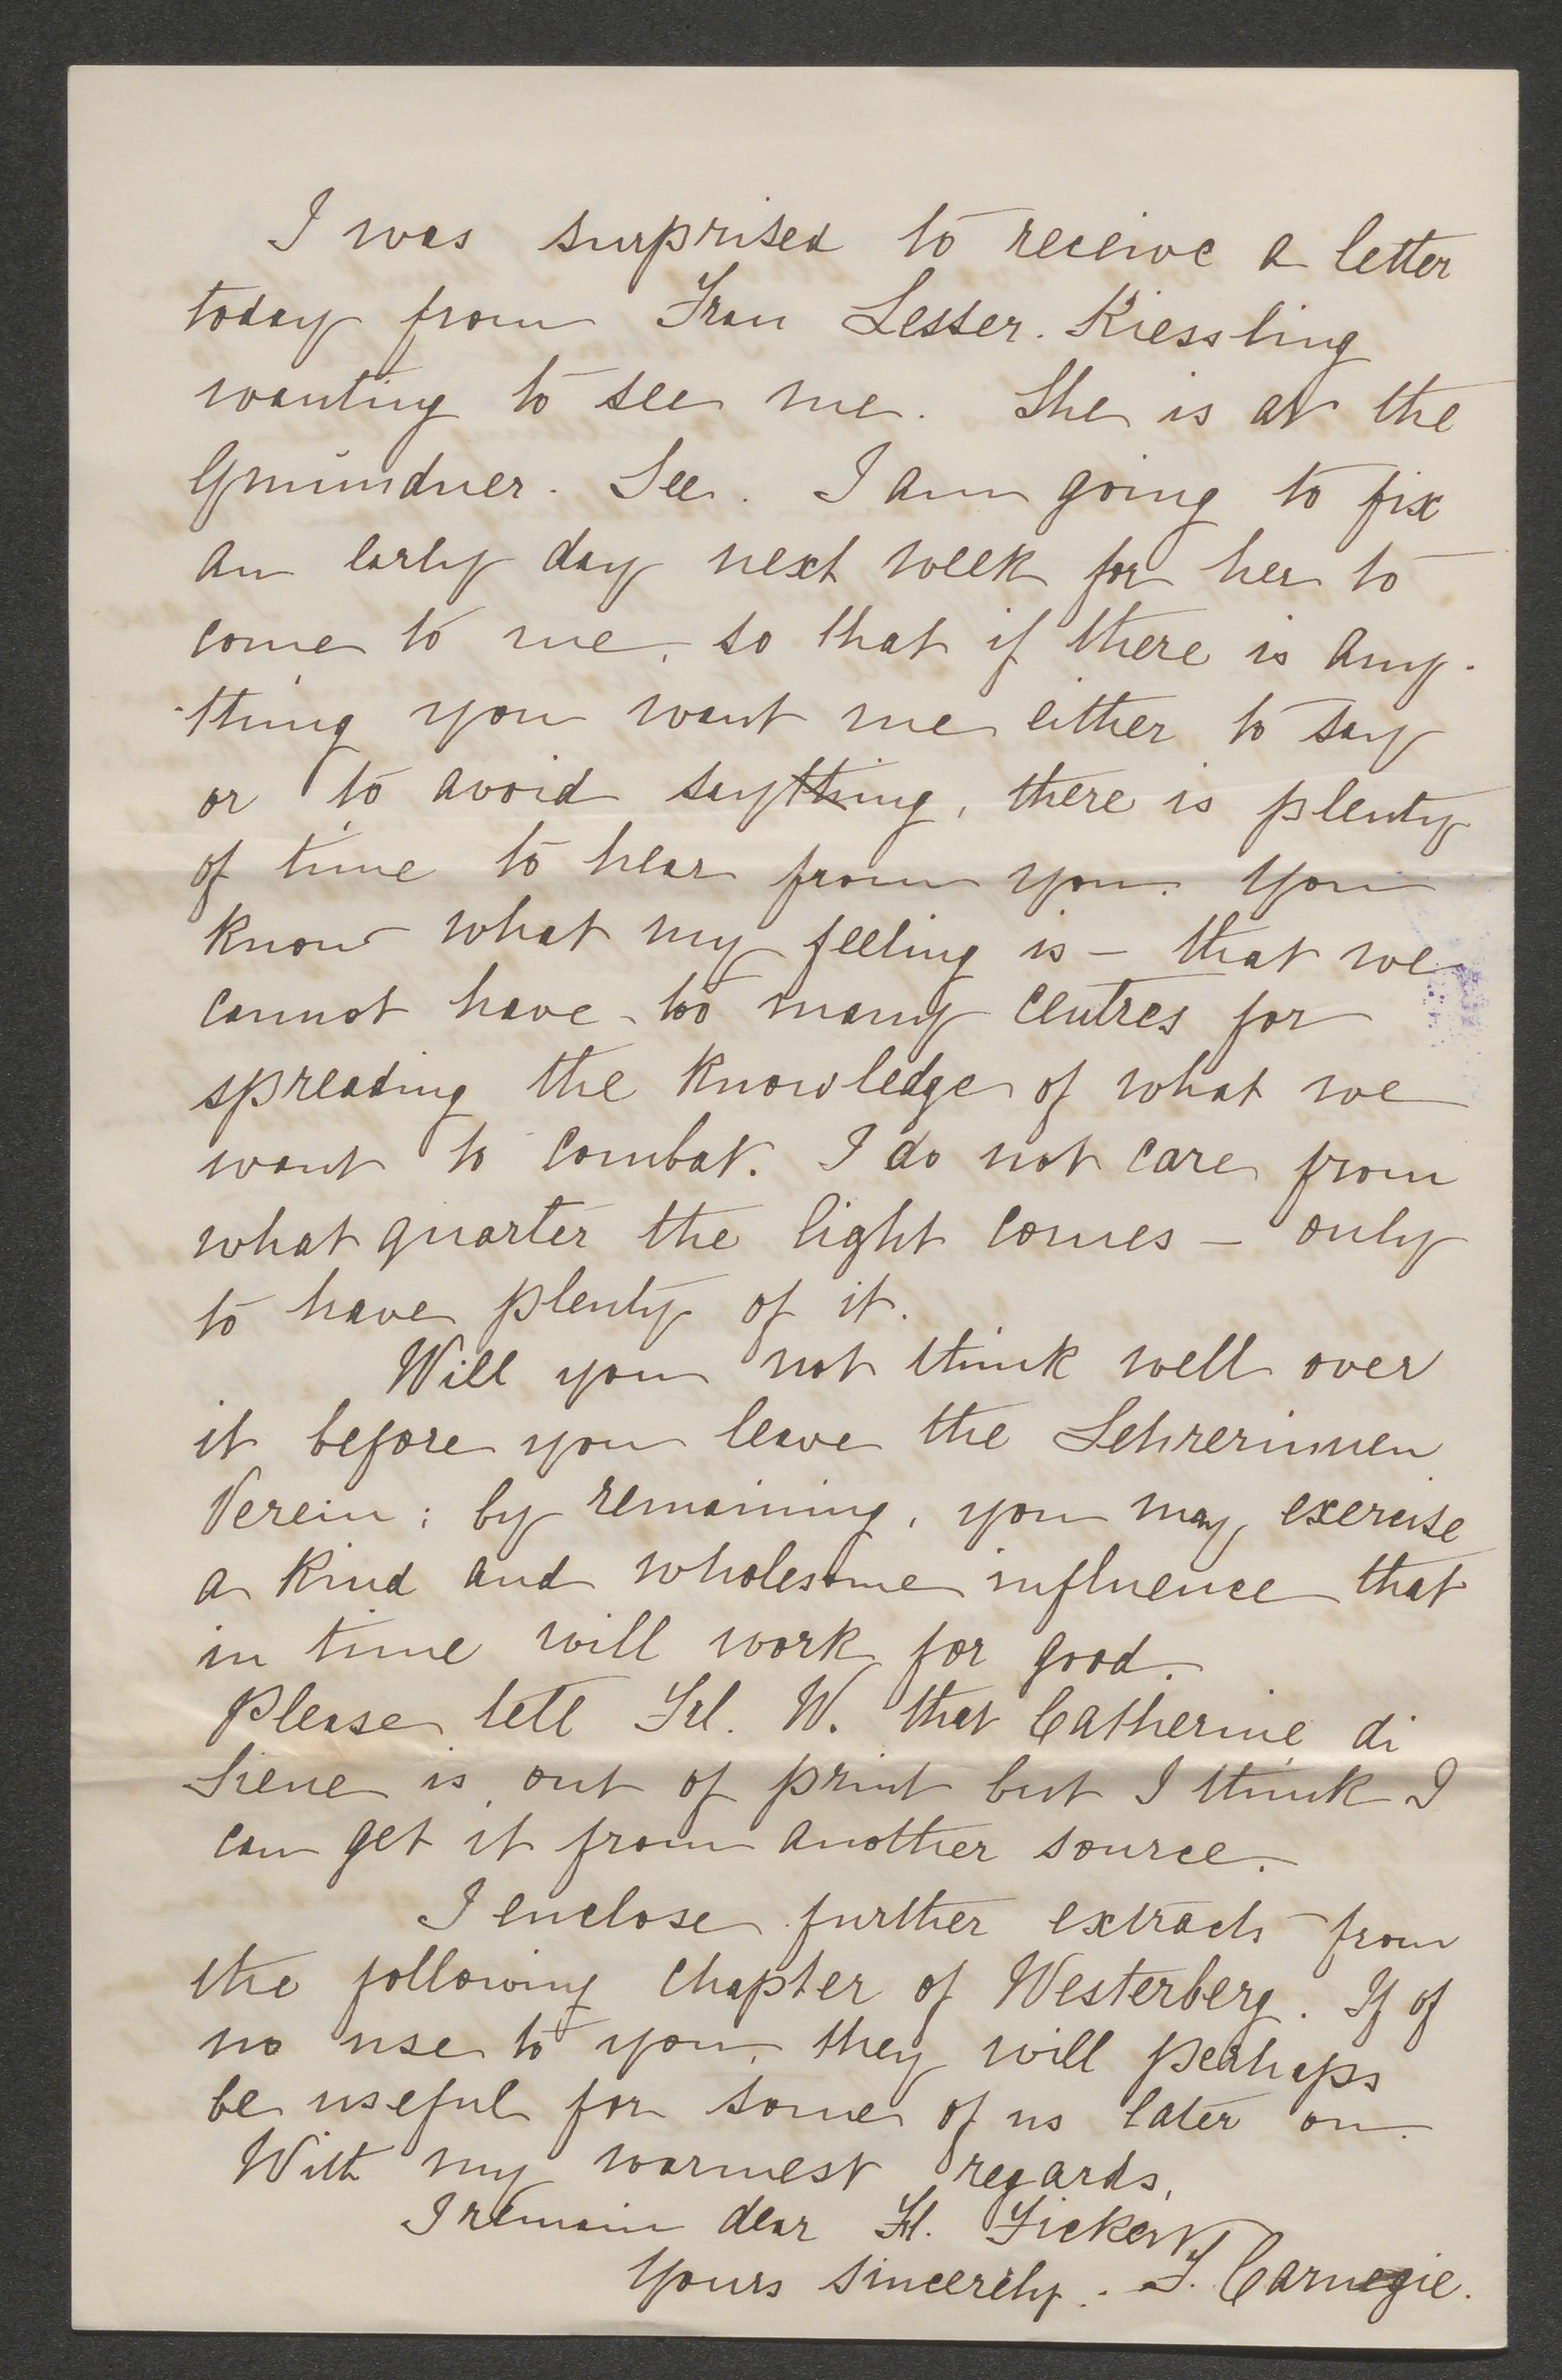 I was surprised to receive a letter
today from Frau Lesser-Kiessling
wanting to see me. She is at the
Gmundner-See. I am going to fix
an early day next week for her to
come to me, so that if there is any-
-thing you want me either to say
or to avoid saything, there is plenty
of time to hear from you. You
know what my feeling is – that we
cannot have too many centres for
spreading the knowledge of what we
want to combat. I do not care from
what quarter the light comes – only
to have plenty of it.
Will you not think well over
it before you leave the Lehrerinnen
Verein; by remaining, you may exercise
a kind and wholesome influence that
in time will work for good.
Please tell Frl. W. that Catherine di
Siene is out of print but I think I
can get it from another source.
I enclose further extracts from
the following chapter of Westerberg. If of
no use to you, they will perhaps
be useful for some of us later on.
With my warmest regards,
I remain dear Frl. Fickert
Yours sincerely. F. Carnegie.